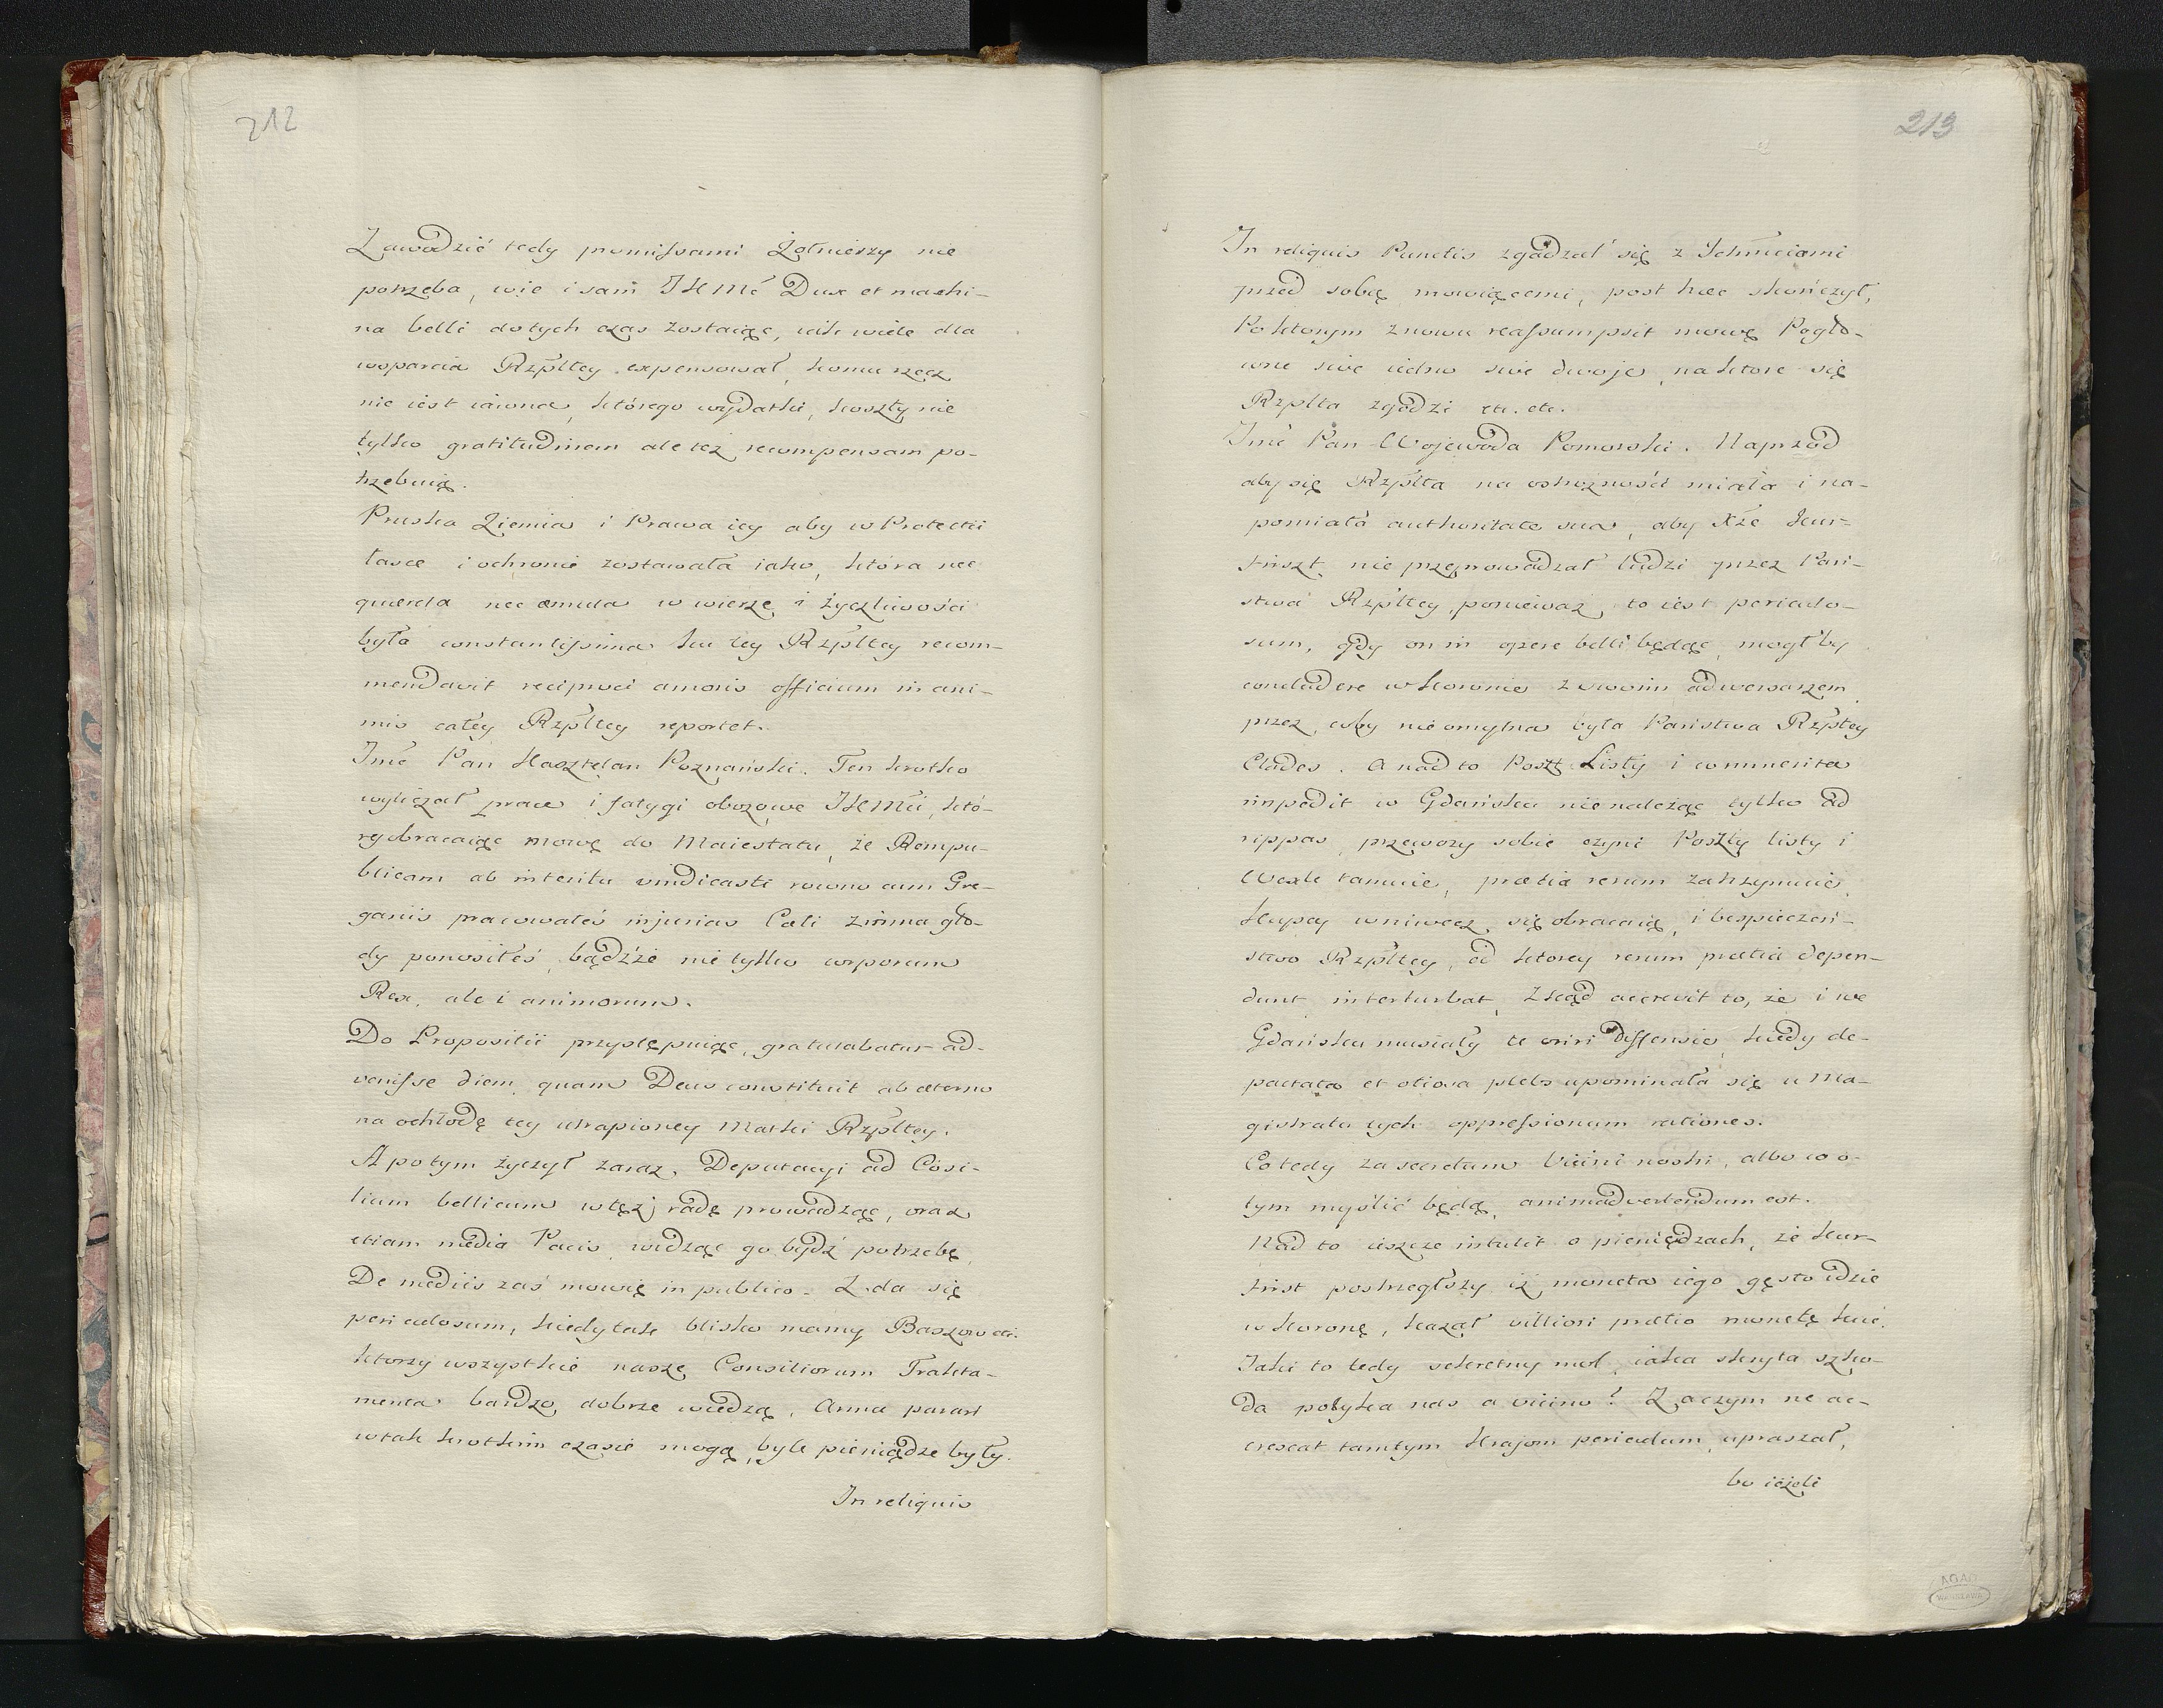 212
Zawodzić tedy promissami Żołnierzy nie
potrzeba, wie i sam JKMć Dux et machi-
na belli dotych czas zostaiąc, iak wiele dla
wsparcia Rzpltey expensował, komu rzecz
nie iest iawna, którego wydatki, koszty nie
tylko gratitudinem ale też recompensam po-
trzebuią.
Pruska Ziemia i Prawa iey aby w Protectii
łasce i ochronie zostawała iako, która nec
querela nec æmula w wierze i życzliwości
była constantissima ku tey Rzpltey recom-
mendavit reciproci amoris officium in ani-
mis całey Rzpltey reportet.
Jmć Pan Kasztelan Poznański. Ten krotko
wyliczał prace i fatygi obozowe JKMci, któ-
ry obracaiąc mowę do Maiestatu, że Rempu-
blicam ab interitu vindicasti rowno cum Gre-
gariis pracowałeś injurias Cæli zimna gło-
dy ponosiłeś, bądźże nie tylko corporum
Rex, ale i animorum.
Do Propositii przystępuiąc, gratulabatur ad-
venisse diem, quam Deus constituit ab æterno
na ochłodę tey utrapioney Matki Rzpltey.
A potym życzył zaraz, Deputacyi ad Cosi-
lium bellicum w tęż radę prowadząc, oraz
etiam media Pacis, widząc go bydź potrzebę,
De mediis zaś mowię in publico. Zda się
periculosum, kiedy tak blisko mamy Baszow etc.
ktorzy wszystkie nasze Consiliorum Trakta-
menta bardzo dobrze wiedzą. Arma parari
w tak krotkim czasie mogą, byle pieniądze były.
In reliquis
213
In reliquis Punctis zgadzał się z Ichmciami
przed sobą mowiącemi, post hæc skończył,
Po ktorym znowu reassumpsit mowę Pogło-
wne sive iedno sive dwoje, na ktore się
Rzplta zgodzi etc. etc.
Jmć Pan Wojewoda Pomorski. Naprzod
aby się Rzplta na ostrożności miała i na-
pomiała authoritate sua, aby Xże Kur-
firszt, nie przeprowadzał ludzi przez Pań-
stwa Rzpltey, ponieważ, to iest periculo-
sum, gdy on in opere belli będąc, mogł by
concludere w Koronie z swoim adwersarzem
przez, coby nieomylna była Państwa Rzpltey
Clades. A nad to Poszt Listy i commercia
impedit w Gdańsku nie należąc tylko ad
rippas, przewozy sobie czyni Poszty listy i
Wexle tamuie, pretia rerum zatrzymuie,
Kupcy wniwecz się obracaią, i bespieczeń-
stwo Rzpltey, od ktorey rerum pretia depen-
dunt interturbat, Zkąd accrevit to, że i we
Gdańsku musiały te oriri dissensie, kiedy de-
pactata et otiosa plebs upominała się u Ma-
gistratu tych oppressionum rationes.
Co tedy za secretum Vicini nostri, albo co o-
tym myślić będą, animadvertendum est.
Nad to ieszcze intulit o pieniędzach, że Kur-
first postrzegłszy iż moneta iego gęsto idzie
w Koronę, kazał villiori pretio monetę kuć.
Jaki to tedy sekretny mol, iaka skryta szko-
da potyka nas a vicino? Zaczym ne ac-
crescat tamtym Krajom periculum, upraszał,
bo ieżeli
AGAD
WARSZAWA